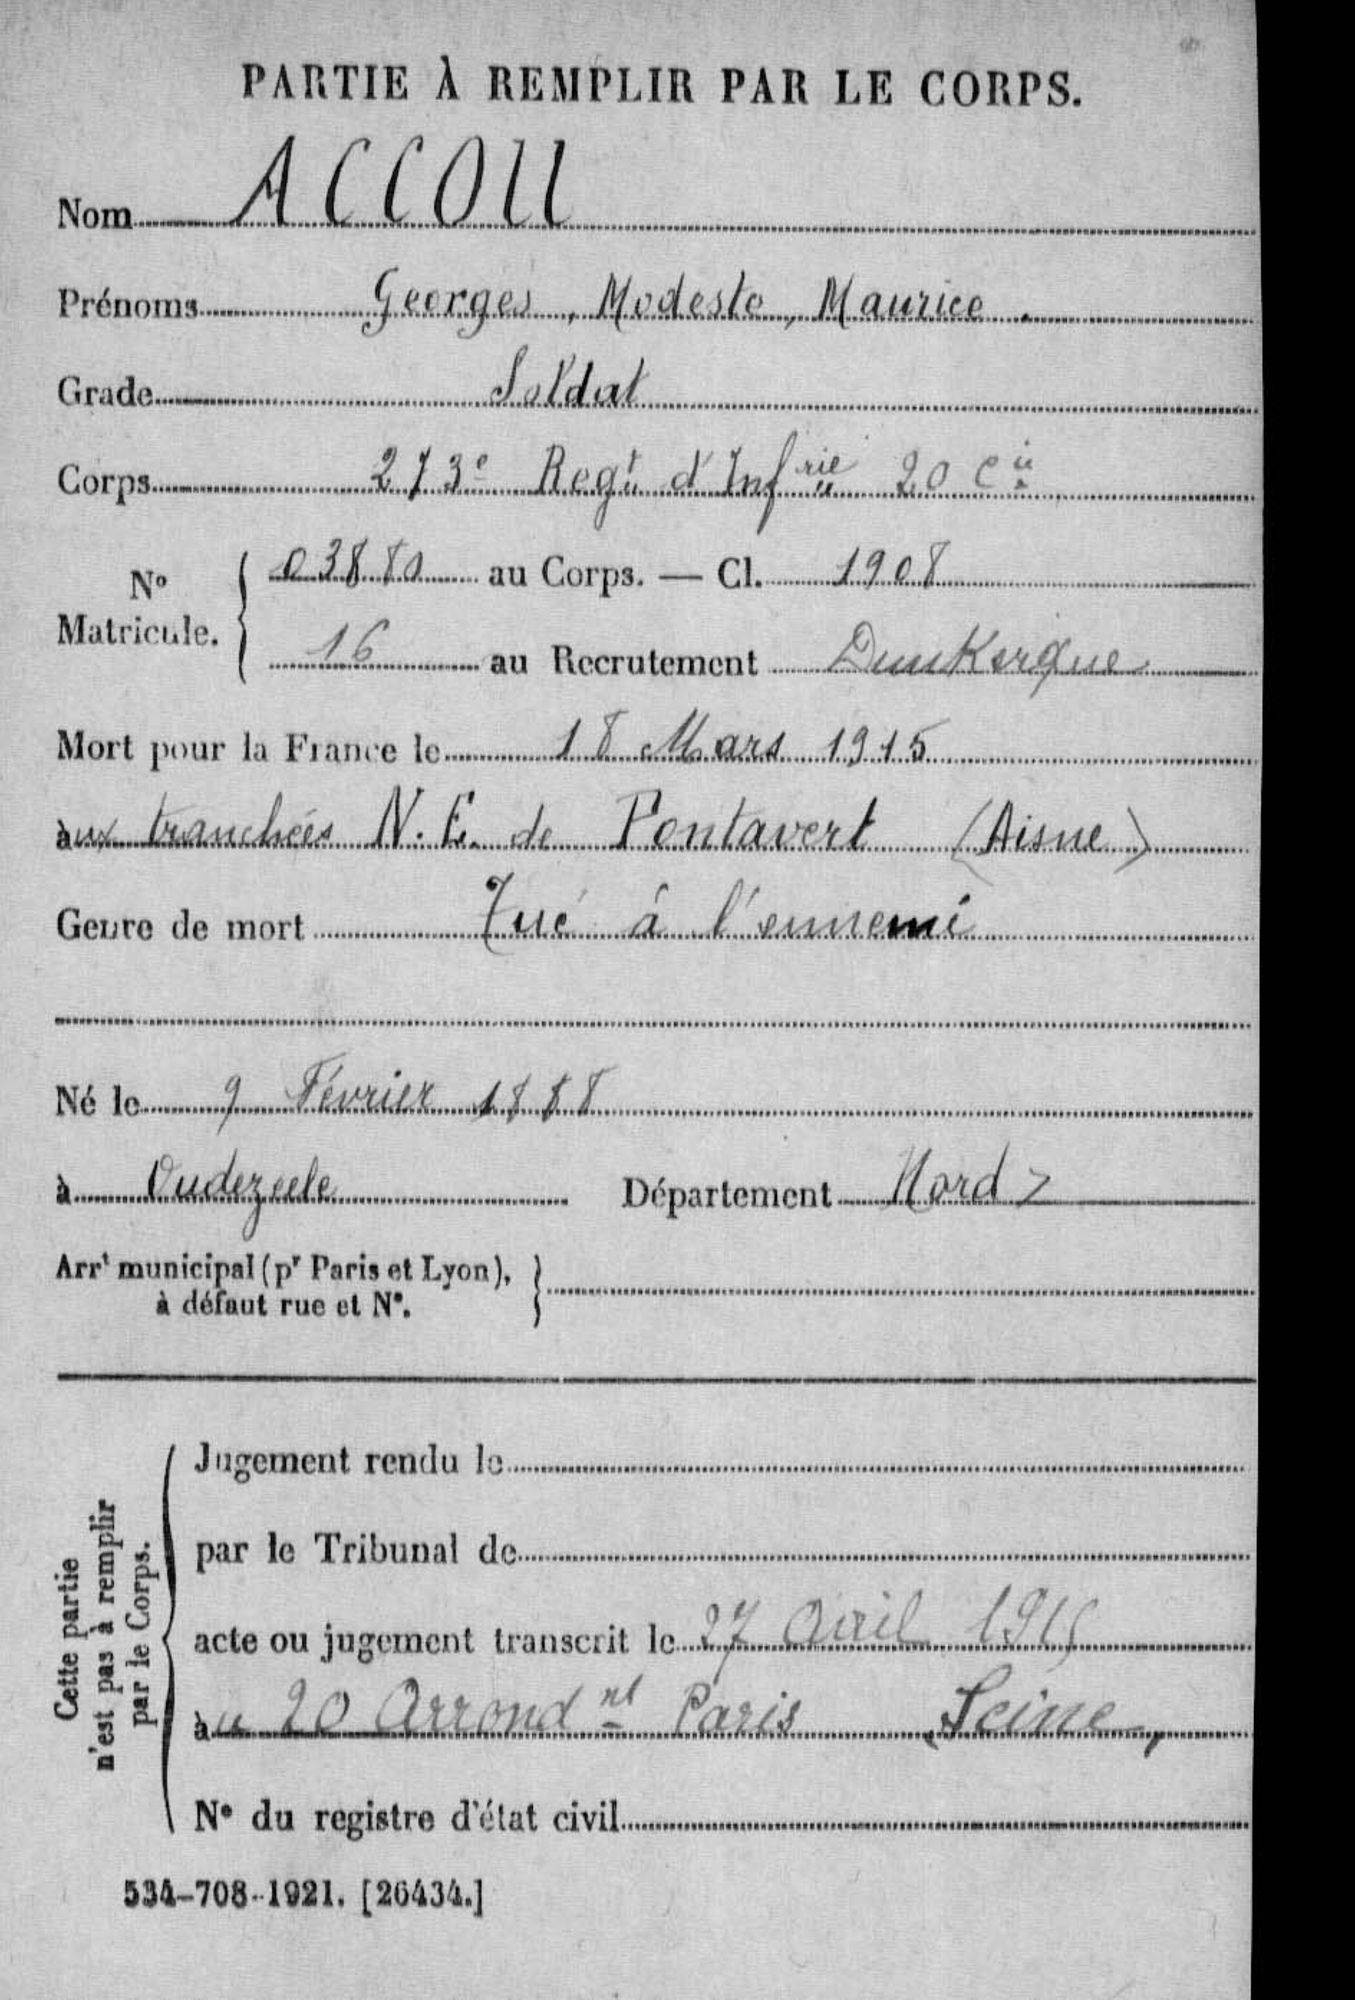 PARTIE À REMPLIR PAR LE CORPS.
Nom ACCOU
Prénoms Georges, Modeste, Maurice.
Grade Soldat
Corps 273e Regt d'Infrie 20 Cie
No Matricule. { 03880 au Corps. — Cl. 1908
16 au Recrutement Dunkerque
Mort pour la France le 18 Mars 1915
aux tranchées N.E. de Pontavert (Aisne)
Genre de mort Tué à l'ennemi
Né le 9 Février 1888
à Oudezeele Département Nord
Arrt municipal (pr Paris et Lyon), }
à défaut rue et No.
Cette partie
n'est pas à remplir
par le Corps.
Jugement rendu le
par le Tribunal de
acte ou jugement transcrit le 27 Avril 1915
au 20 Arrondnt Paris Seine
No du registre d'état civil
534-708-1921. [26434.]